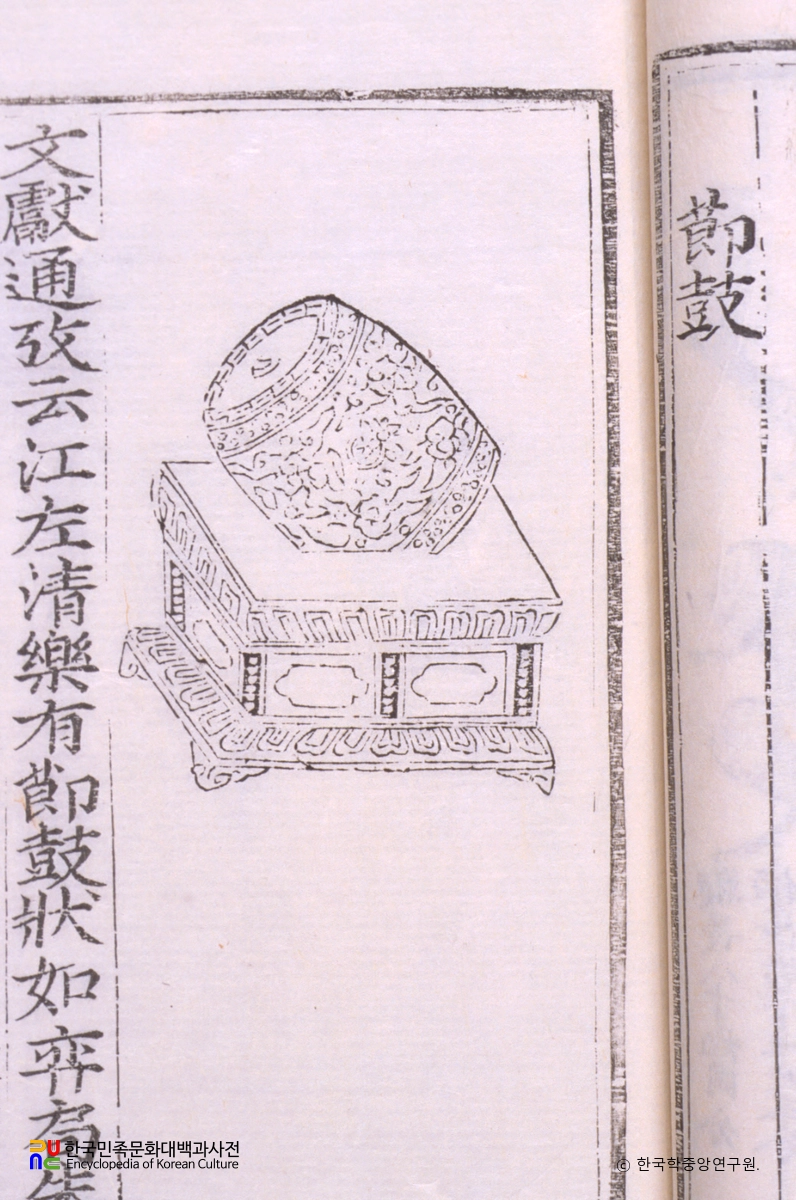 節鼓
文獻通攷云江左清樂有節鼓狀如弈局
한국민족문화대백과사전
Encyclopedia of Korean Culture
ⓒ 한국학중앙연구원.